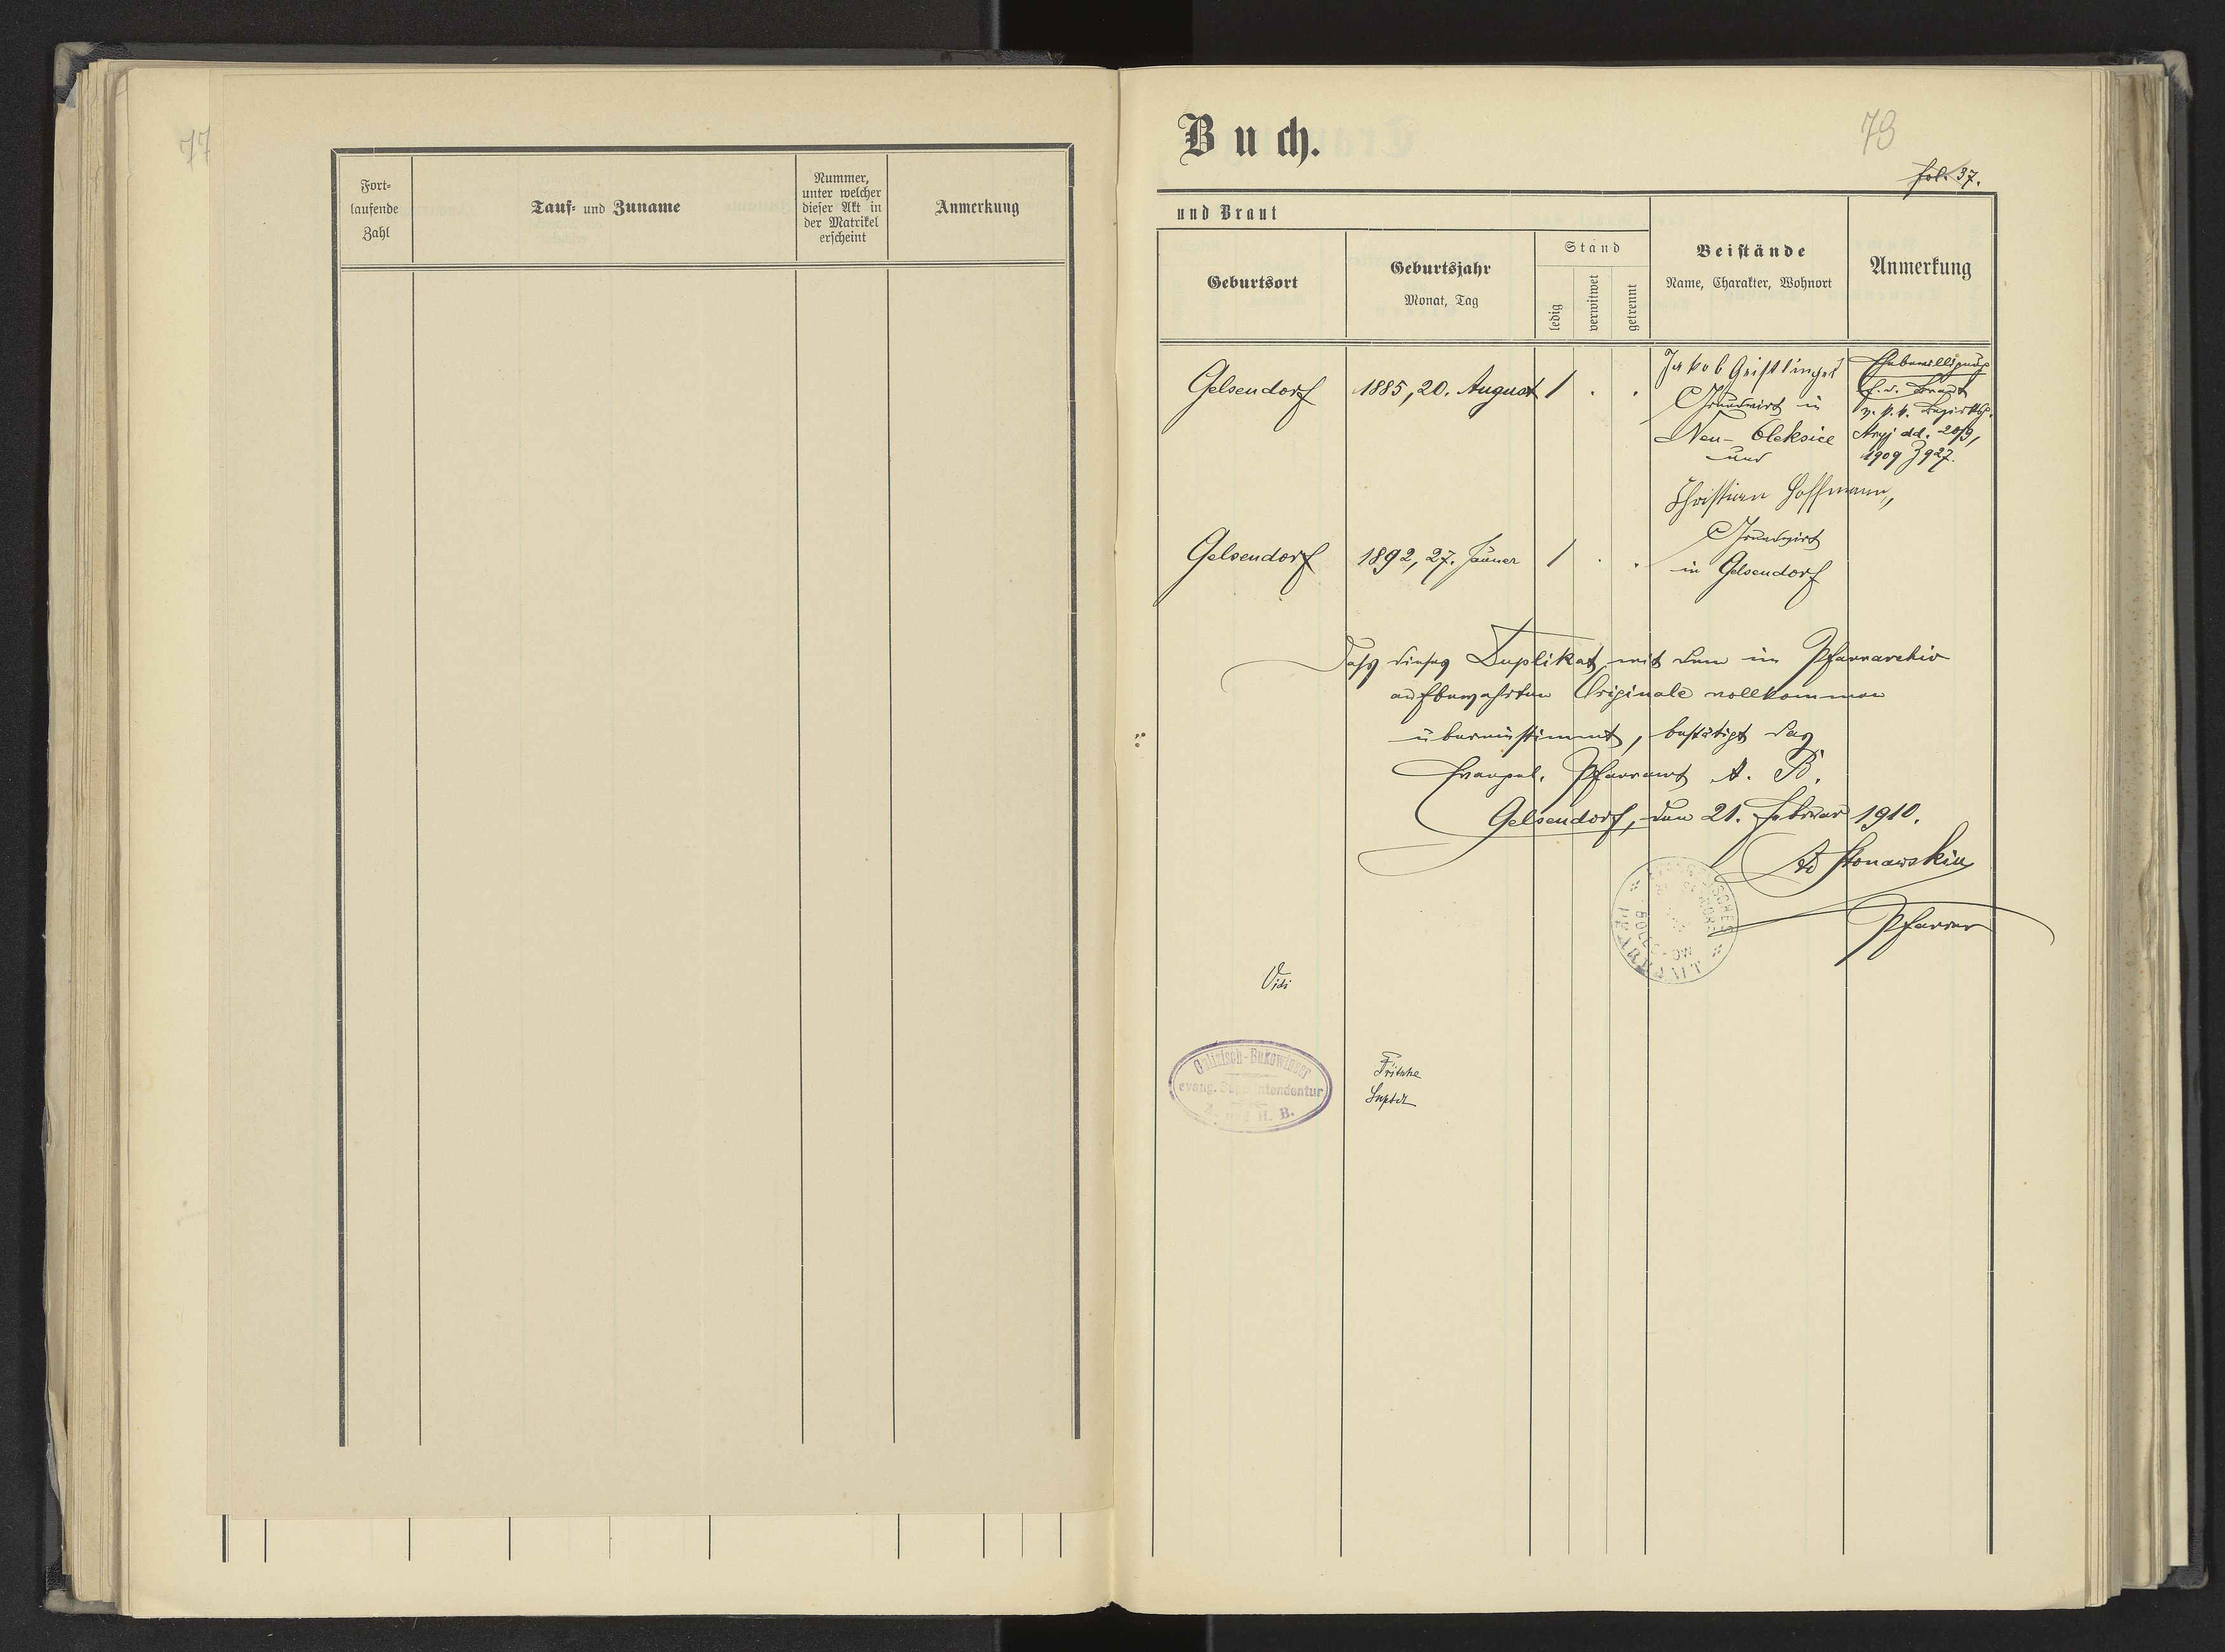 77
Fort-
laufende
Zahl
Tauf- und Zuname
Nummer,
unter welcher
dieser Akt in
der Matrikel
erscheint
Anmerkung
Buch.
78
fol. 37.
und Braut
Geburtsort
Geburtsjahr
Monat, Tag
Stand
ledig
verwitwet
getrennt
Beistände
Name, Charakter, Wohnort
Anmerkung
Gelsendorf
1885, 20. August
1 . .
Jakob Geistlinger
Grundwirt in
Neu-Oleksice
und
Christian Hoffmann,
Grundwirt
in Gelsendorf
Ehebewilligung
f. d. Braut
v. k. k. Bezirksg.
Stryj dd. 20/9,
1909 Z 927.
Gelsendorf
1892, 27. Jänner
1 . .
Dass dieses Duplikat mit dem im Pfarrarchiv
aufbewahrten Originale vollkommen
übereinstimmt, bestätigt das
Evangel. Pfarramt A. B.
Gelsendorf, den 21. Februar 1910.
Stonawski
Pfarrer
PFARRAMT
Vidi
Galizisch-Bukowinaer
evang. Superintendentur
A. und H. B.
Fritsche
Suptdt